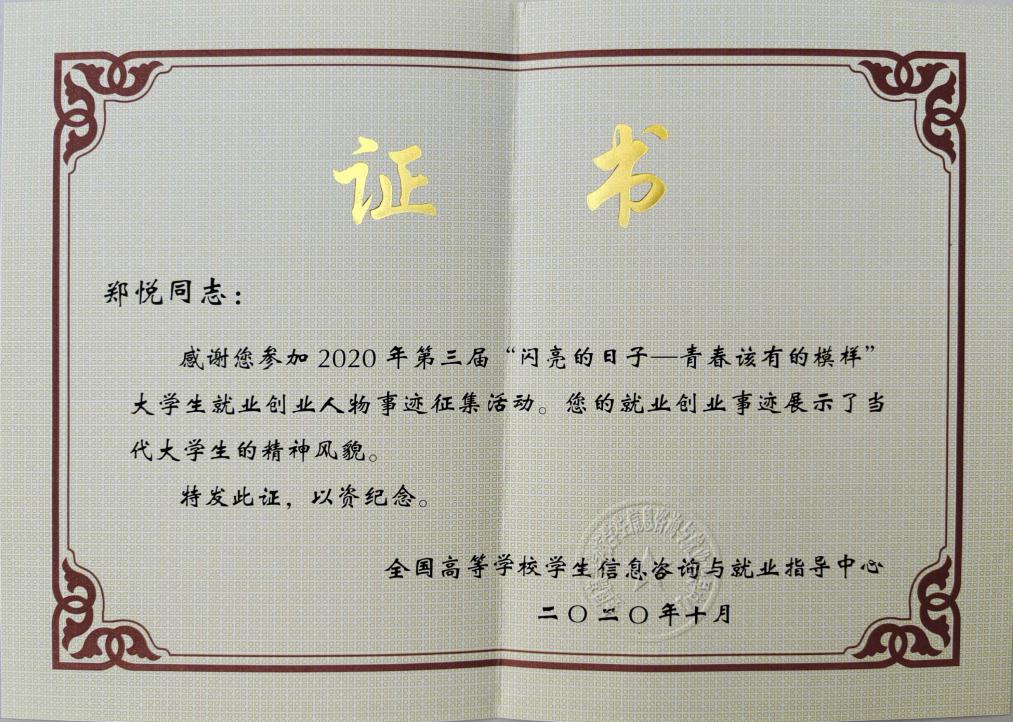 证书
郑悦同志：
感谢您参加2020年第三届“闪亮的日子—青春该有的模样”
大学生就业创业人物事迹征集活动。您的就业创业事迹展示了当
代大学生的精神风貌。
特发此证，以资纪念。
全国高等学校学生信息咨询与就业指导中心
二〇二〇年十月